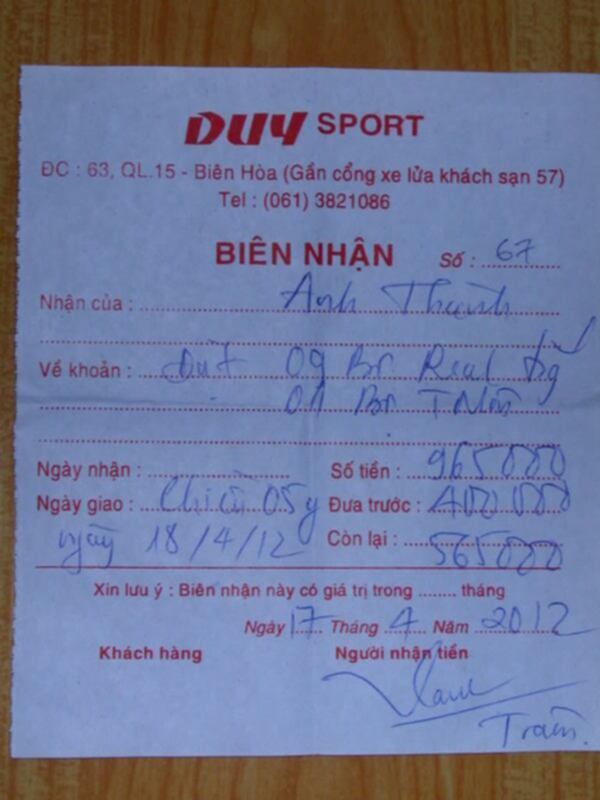 DUY SPORT
ĐC : 63, QL.15 - Biên Hòa (Gần cổng xe lửa khách sạn 57)
Tel : (061) 3821086
BIÊN NHẬN Số : 67
Nhận của : Anh Thành
Về khoản : Đặt 09 Bộ Real
01 Bộ
Ngày nhận : Số tiền : 965000
Ngày giao : Chiều 05g Đưa trước : 400 000
ngày 18/4/12 Còn lại : 565000
Xin lưu ý : Biên nhận này có giá trị trong ........ tháng
Ngày 17 Tháng 4 Năm 2012
Khách hàng Người nhận tiền